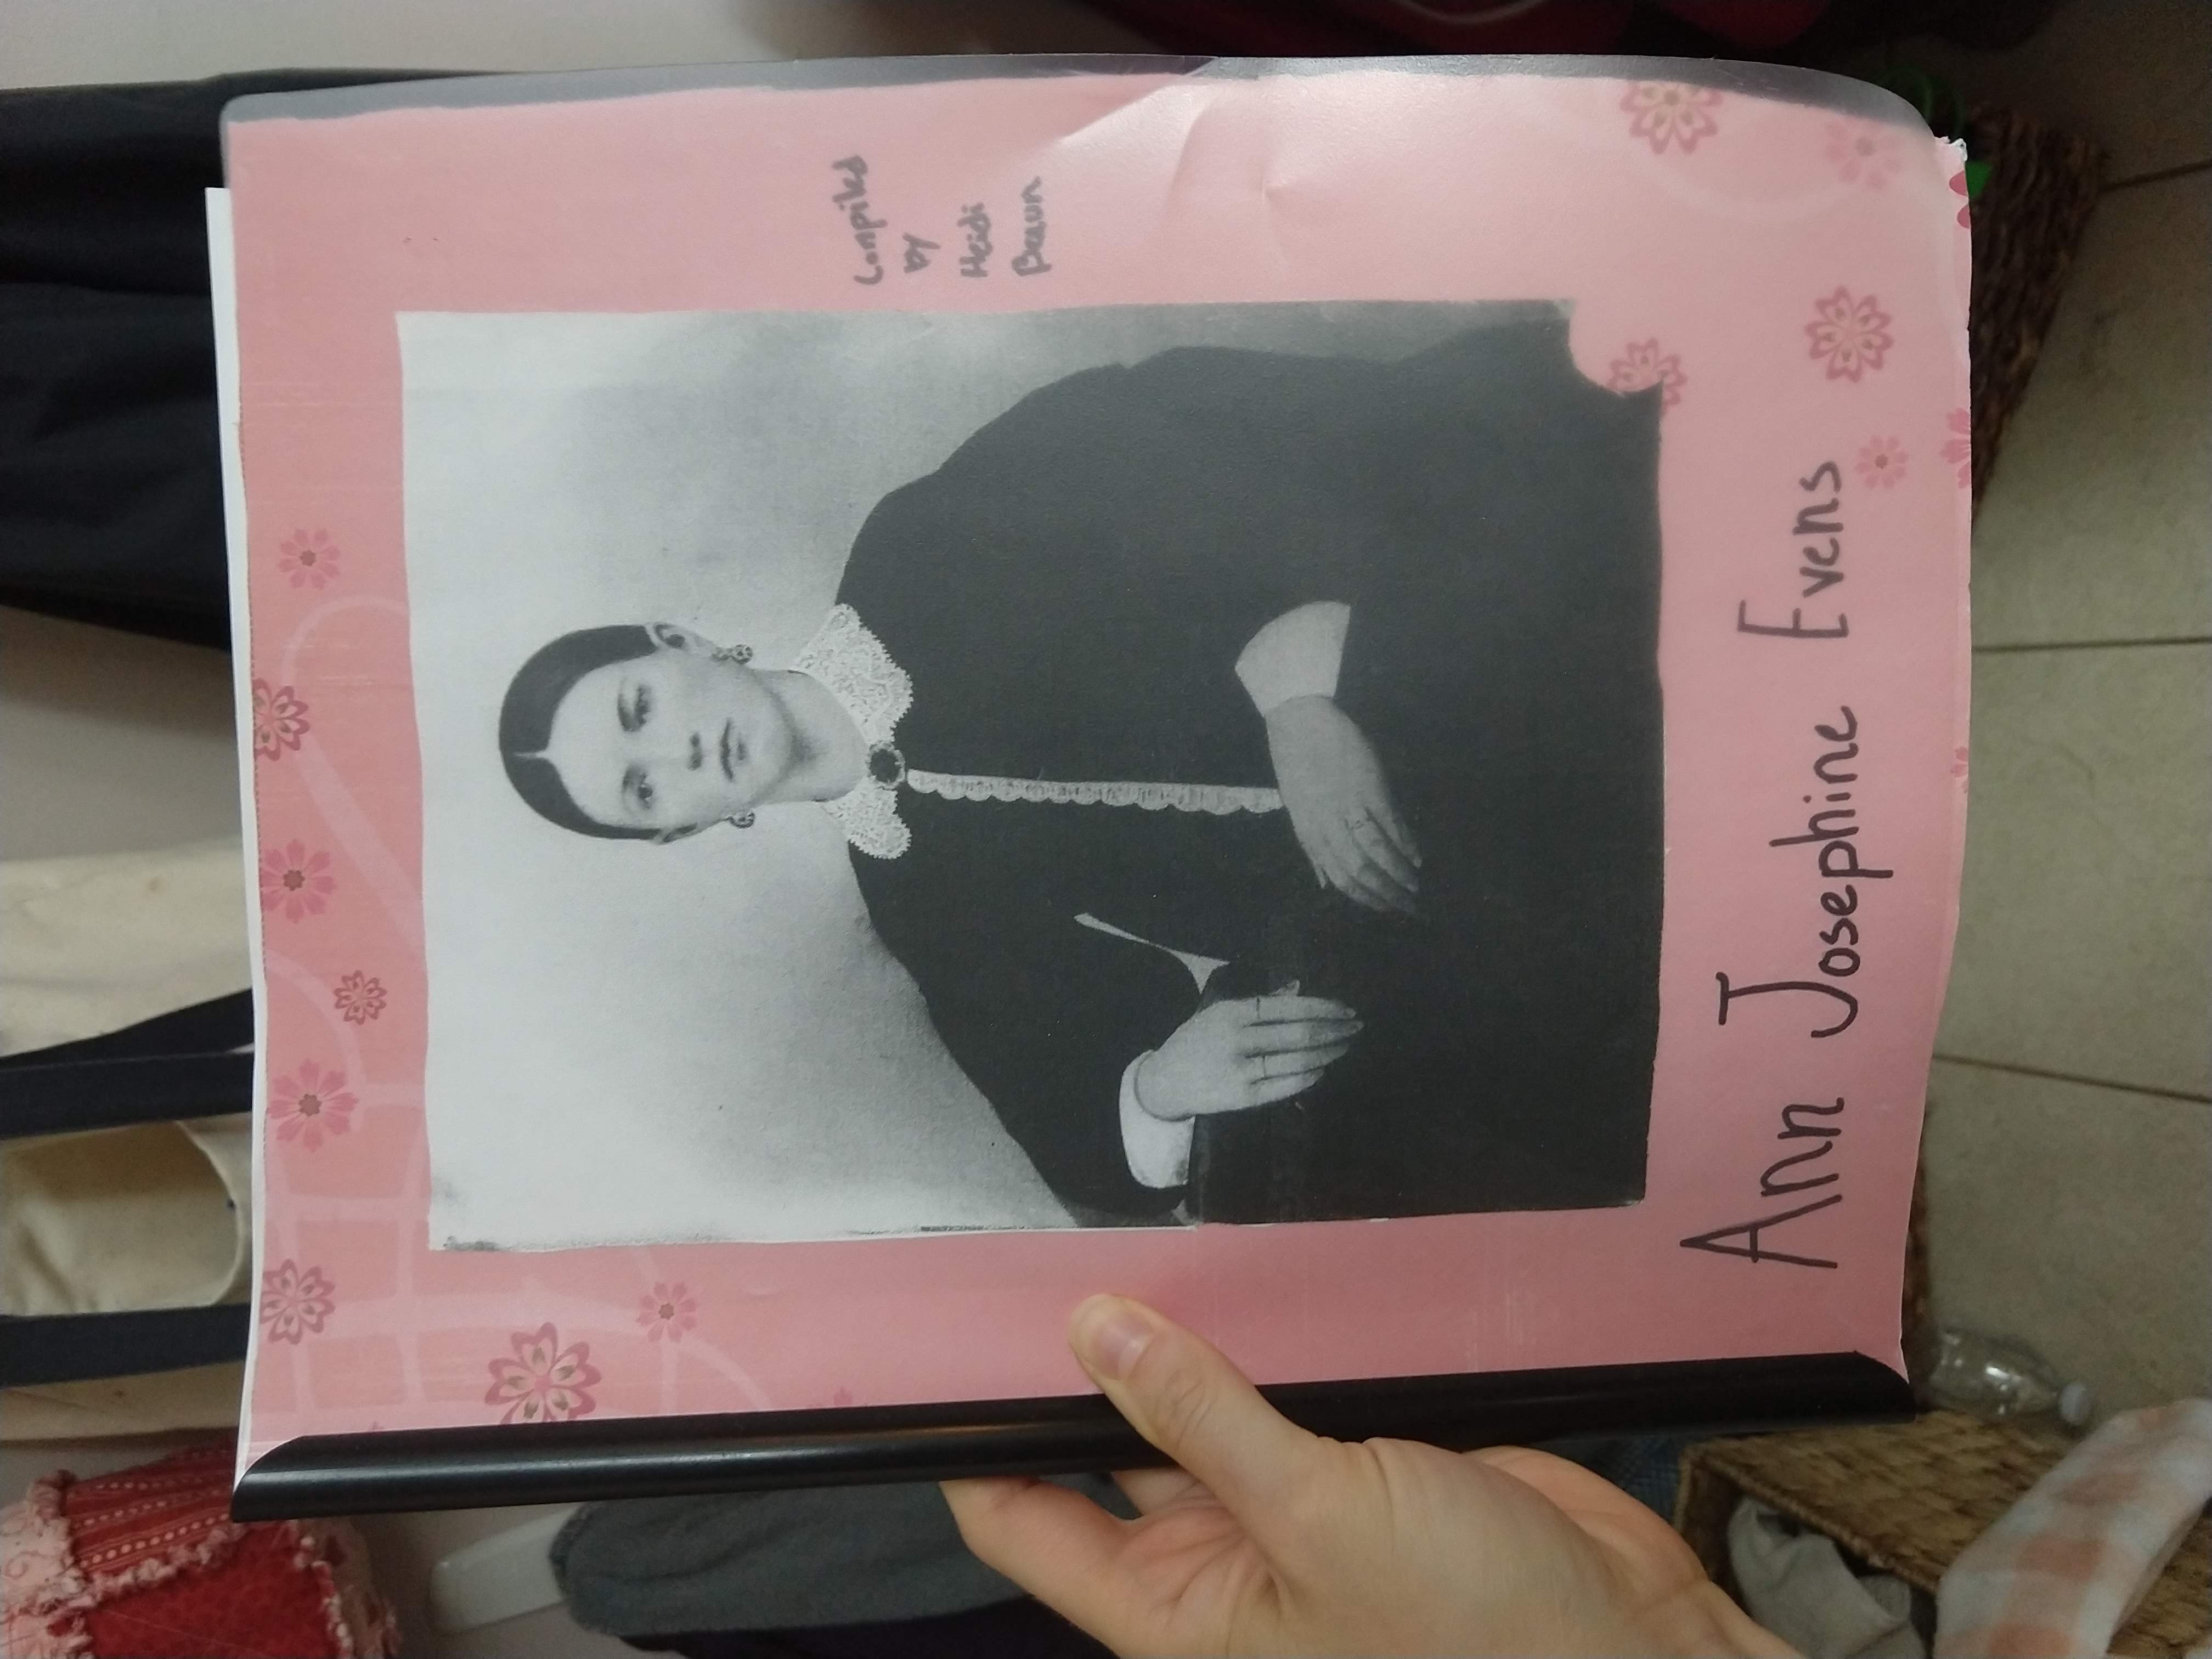 Compiled
by
Heidi
Ann Josephine Evens